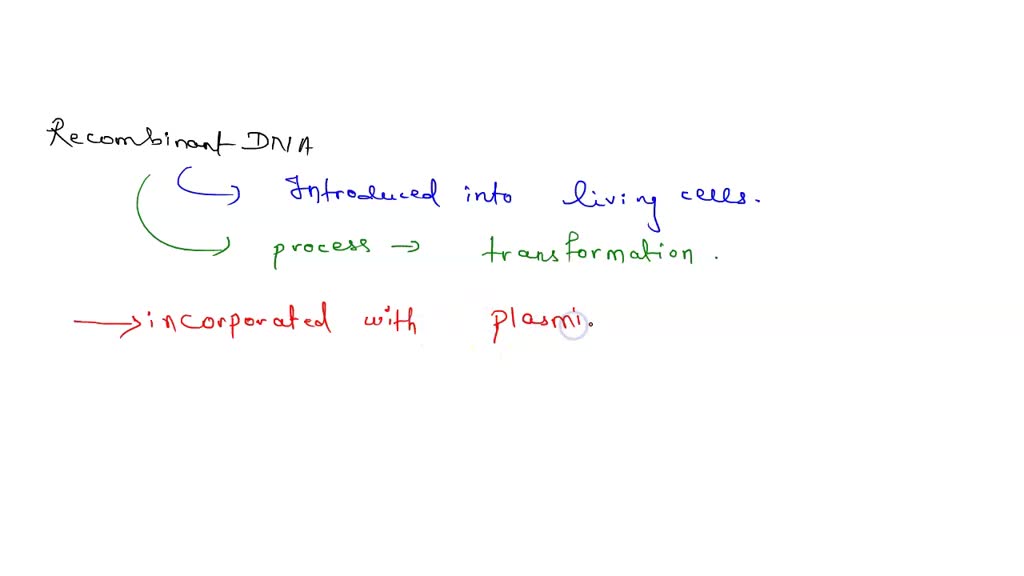 Recombinant DNA
Introduced into living cells.
process → transformation.
→ incorporated with plasmi.